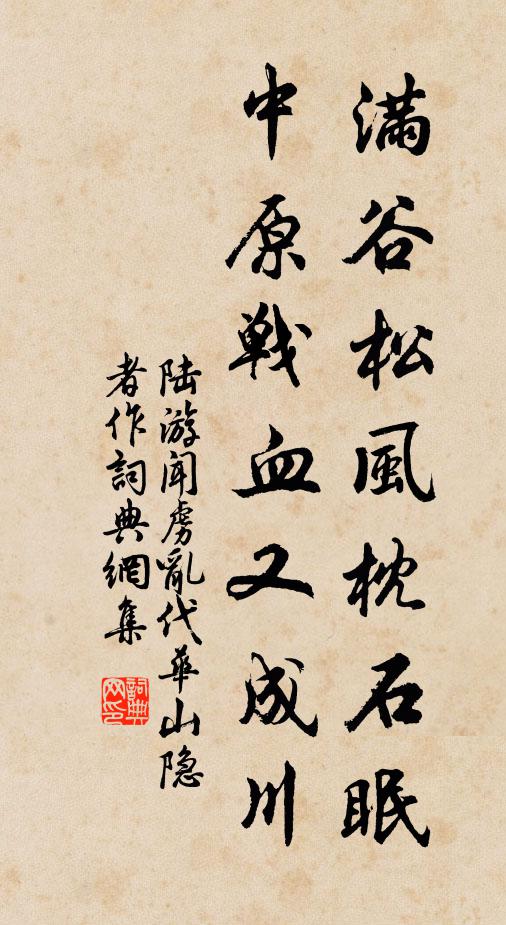 滿谷松風枕石眠
中原戰血又成川
陆游闻虜亂代華山隐
者作詞典網集
詞典網印